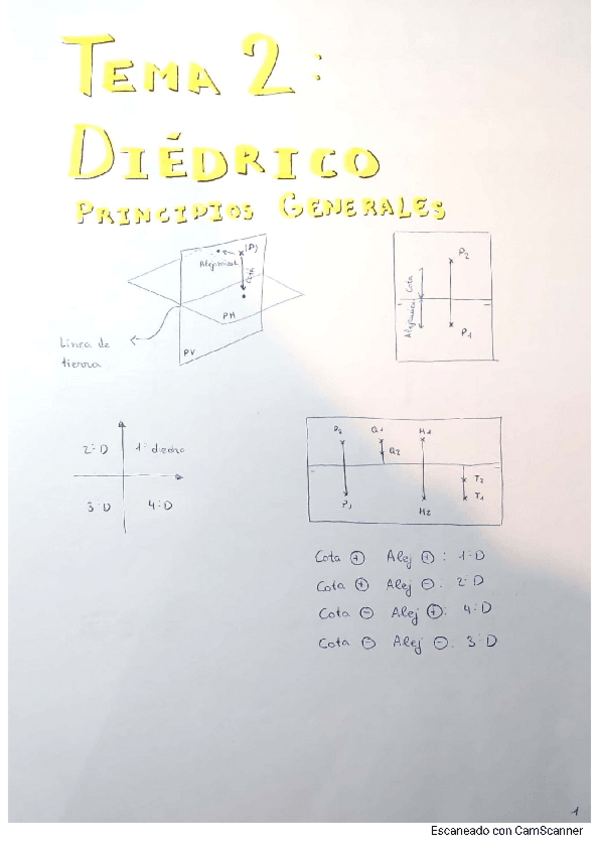 TEMA 2:
DIÉDRICO
PRINCIPIOS GENERALES
(P)
Alejamiento
Cota
PH
PV
Línea de
tierra
P2
Cota
Alejamiento
P1
2º D
1º diedro
3º D
4º D
P2
Q1
H1
Q2
T2
P1
H2
T1
Cota + Alej +: 1º D
Cota + Alej -: 2º D
Cota - Alej +: 4º D
Cota - Alej -: 3º D
1
Escaneado con CamScanner